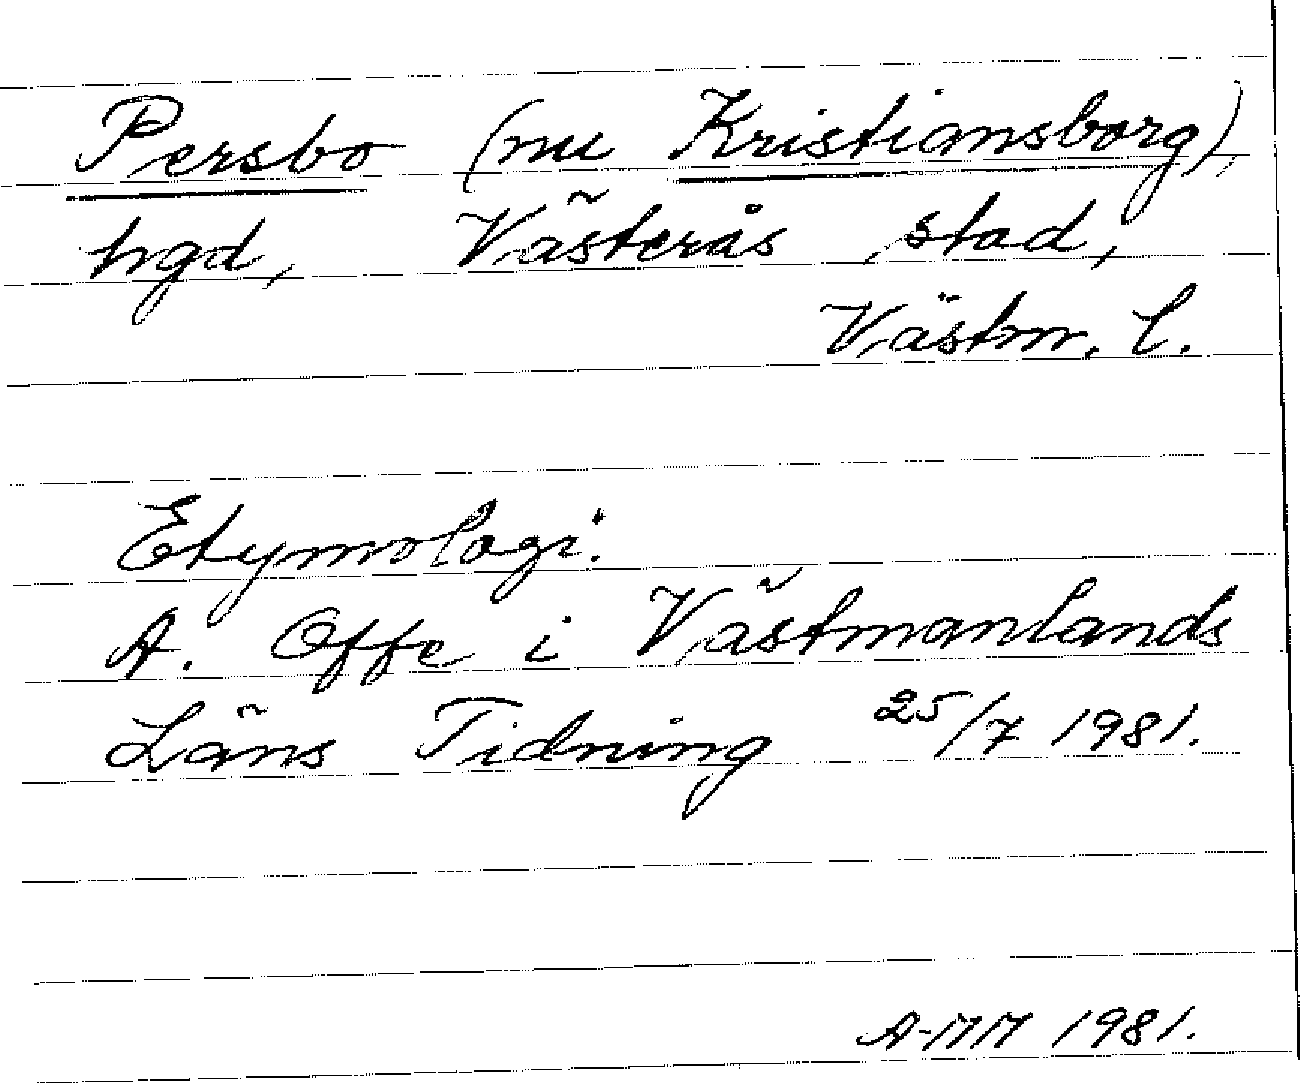 Persbo (nu Kristiansborg),
hgd, Västerås stad,
Västm. l.
Etymologi:
A. Offe i Västmanlands
Läns Tidning 25/7 1981.
A-MM 1981.